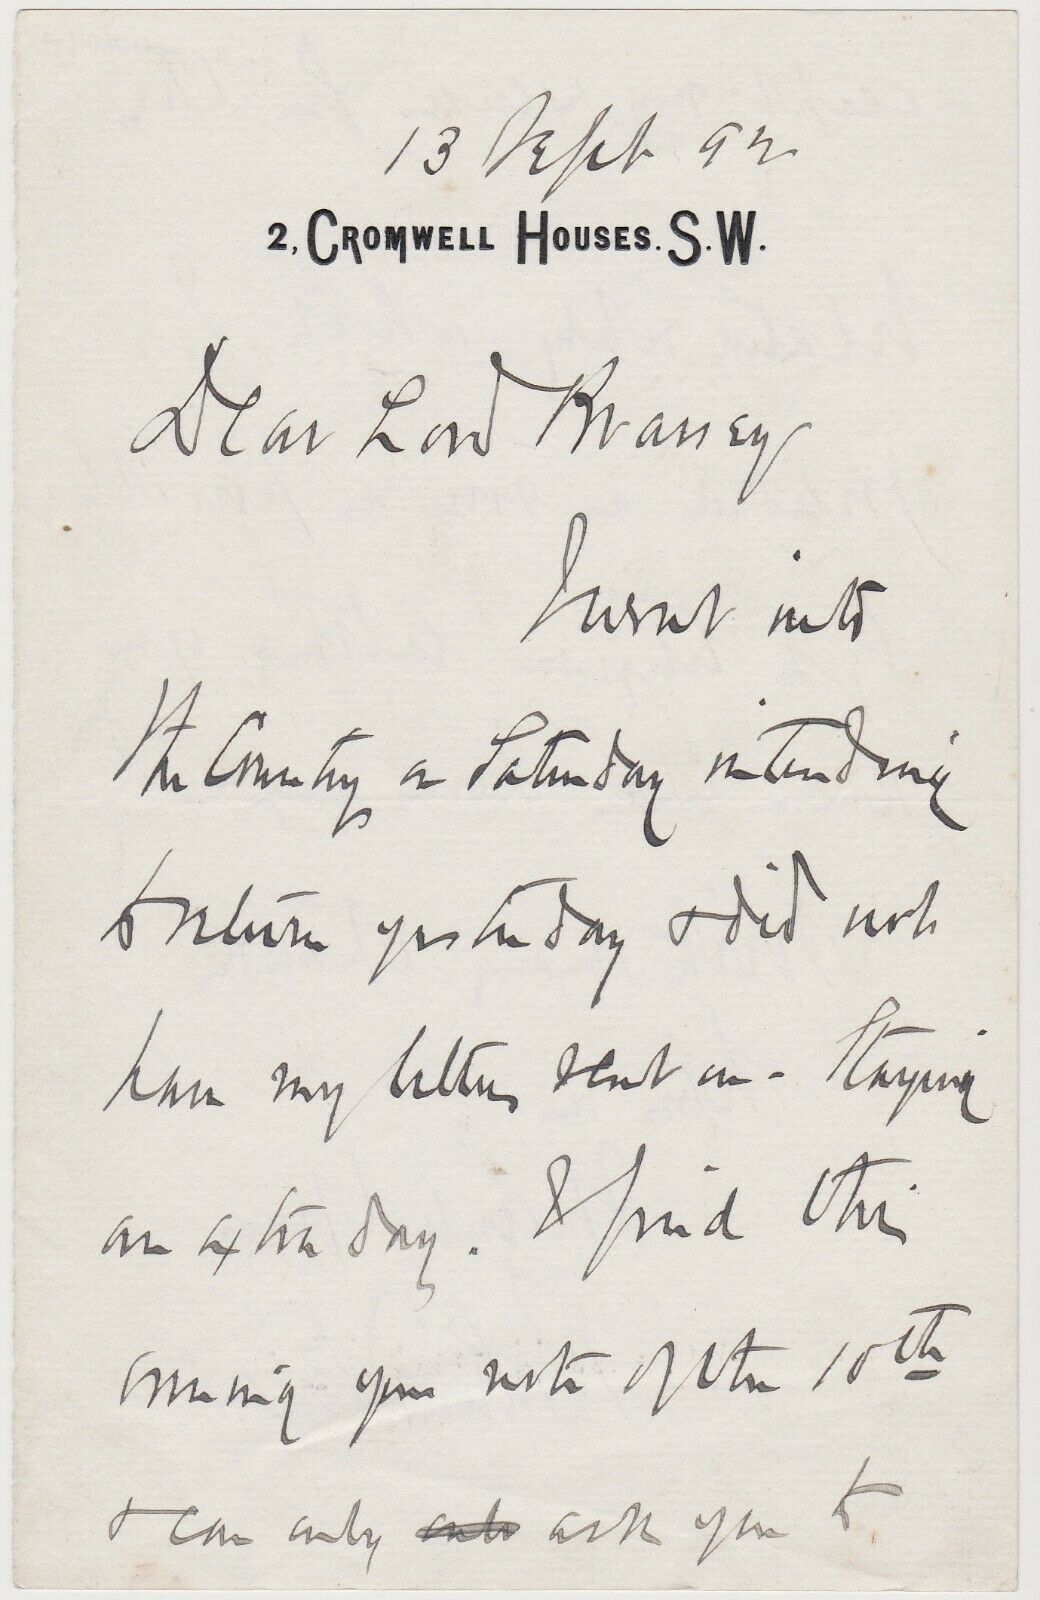 13 Sept 92
2, CROMWELL HOUSES. S.W.
Dear Lord Brassey
I went into
the Country on Saturday intending
to return yesterday & did not
have my letters sent on - Staying
an extra day. I find this
evening your note of the 10th
& can only ask you to